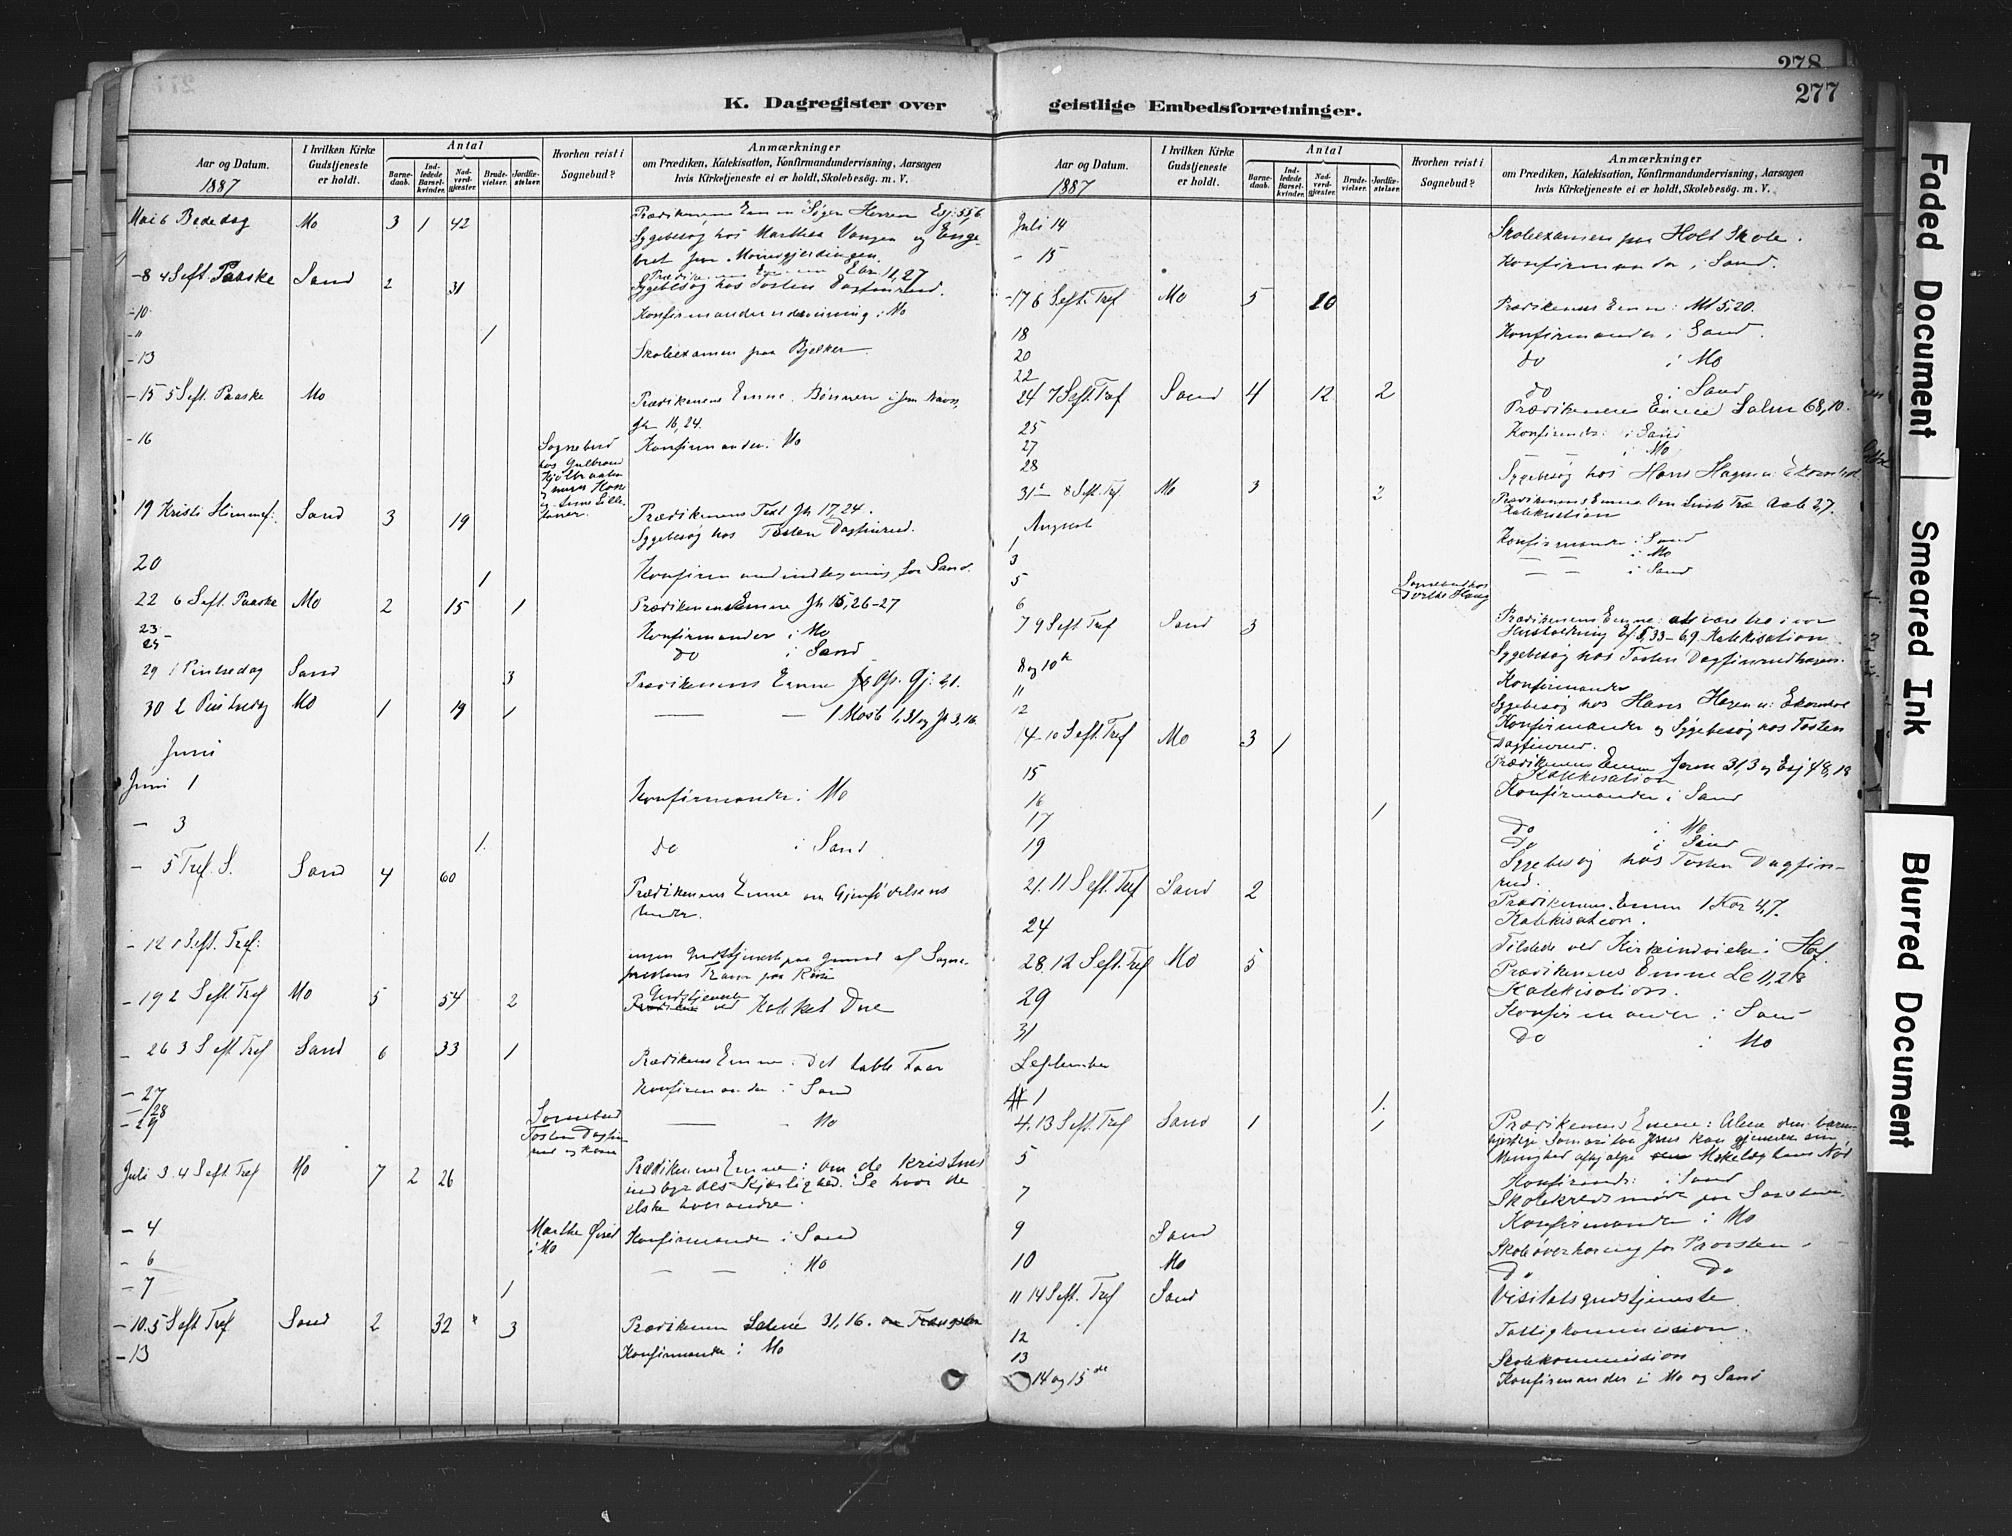 278
277
K. Dagregister over geistlige Embedsforretninger.
Aar og Datum.
1887
I hvilken Kirke Gudstjeneste er holdt.
Antal
Barnedaab.
Indledede Barselkvinder.
Nadverdgjæster.
Brudevielser.
Jordfæstelser.
Hvorhen reist i Sognebud?
Anmærkninger
om Prædiken, Katekisation, Konfirmandundervisning, Aarsagen
hvis Kirketjeneste ei er holdt, Skolebesøg. m. V.
Mai 6 Bededag Mo 3 1 42 Prædikenens Emne Søger Herren Esj: 55,6.
Sygebesøg hos Marthea Vangen og Enge-
bret
-8 4 Seft. Paaske Sand 2 31 Ebr 11,27
Sygebesøg hos Tosten Dagfinrud.
-10 Konfirmandundervisning i Mo
-" 1
-13 Skoleexamen paa Bjelker
-15 5 Seft. Paaske Mo Prædikenens Emne Bønnen i Jesu Navn,
Jh 16,24.
-16 Sognebud hos Konfirmander i Mo
19 Kristi Himmef: Sand 3 19 Prædikenens Text Jh 17,24.
Sygebesøg hos Tosten Dagfinrud.
20 1 for Sand.
22 6 Seft. Paaske Mo 2 15 1 Prædikenens Emne Jh 15,26-27
23 - Konfirmander i Mo
25 do i Sand
29 1 Pintsedag Sand 3 Prædikenens Emne Ap. Gj. 2,1.
30 2 Pintsedag Mo 1 19 1 — — 1 Mosb 1,31 og Jh 3,16.
Juni
Juni 1 Konfirmander i Mo
- 3 1. do i Sand
- 5 Tref. S. Sand 4 60 Prædikenens Emne om Gjenfødelsens
under.
- 12 1 Seft. Tref: ingen Gudstjeneste paa Grund af Sogne-
prestens Fravær paa Reise
- 19 2 Seft Tref Mo 5 54 2 Gudstjeneste ved Katekət Due
- 26 3 Seft Tref Sand 6 33 1 Prædikens Emne: Det tabte Faar
- 27 Konfirmander i Sand
- 28 — — Mo
- 29 Sognebud Tosten Dagfinrud og Kone
Juli 3. 4 Seft Tref Mo 7 2 26 Prædikenens Emne: om de kristnes
indbyrdes Kjærlighed. Se hvor de
elske hverandre.
- 4 Marthe i Mo Konfirmander i Sand
- 6 — — i Mo
- 7 1
- 10. 5 Seft Tref Sand 2 32 3 Prædikenen Salme 31,16.
- 13 Konfirmander i Mo
Aar og Datum.
1887
I hvilken Kirke Gudstjeneste er holdt.
Antal
Barnedaab.
Indledede Barselkvinder.
Nadverdgjæster.
Brudevielser.
Jordfæstelser.
Hvorhen reist i Sognebud?
Anmærkninger
om Prædiken, Katekisation, Konfirmandundervisning, Aarsagen
hvis Kirketjeneste ei er holdt, Skolebesøg. m. V.
Juli 14 Skoleexamen paa Holt Skole.
- 15 Konfirmander i Sand.
-17 6 Seft. Tref Mo 5 20 Prædikenens Emne: Mt 5,20.
18 Konfirmander i Sand.
20 do i Mo
22 do i Sand
24 7 Seft Tref Sand 4 12 2 Prædikenens Emne Salm 68,10.
25 Konfirmds: i Sand
27 — i Mo
28 Sygebesøg hos Hans Hagen
31 8 Seft. Tref. Mo 3 2 Prædikenens Emne Om Livets Træ Aab 2,7.
Katekisation
August
1 Konfirmander i Sand
3 — — i Mo
5 — — i Sand
6 Sognebud hos Dorthe Haug
7 9 Seft Tref Sand 3 Prædikenens Emne: at være tro i vor
Husholdning Katekisation
8 og 10 Sygebesøg hos Tosten Dagfinrudhagen.
11 Konfirmander
12 Sygebesøg hos Hans Hagen
Konfirmander og Sygebesøg hos Tosten
Dagfinrud.
14 10 Seft. Tref Mo 3 1 Prædikenens Emne Jerm 31,3 og Esj 48,18
Katekisation
15 Konfirmander i Sand
16 1
17 do i Mo
19 do i Sand
Sygebesøg hos Tosten Dagfin-
rud.
21. 11 Seft. Tref Sand 2 Prædikenens Emne 1 Kor 4,7.
Katekisation.
24 Tilstede ved Kirkeindvielse i Hof.
28. 12 Seft. Tref Mo 5 Prædikenens Emne Lc 11,28
Katekisation.
29 Konfirmander i Sand
31 Do i Mo
September
1 1.
4. 13 Seft. Tref Sand 1 1 Prædikenens Emne: Alene den barm-
hjertige Samaritan Jesus kan
5 Konfirmds: i Sand
7 Skolekredsmøde paa
Konfirmander i Mo
9 Sand Skoleoverhøring for Provsten.
10 Mo Do Do
11 14 Seft. Tref Sand Visitatsgudstjeneste
12 Fattigkommission.
13 Skolekommission
14 og 15de Konfirmander i Mo og Sand
Faded Document
Smeared Ink
Blurred Document